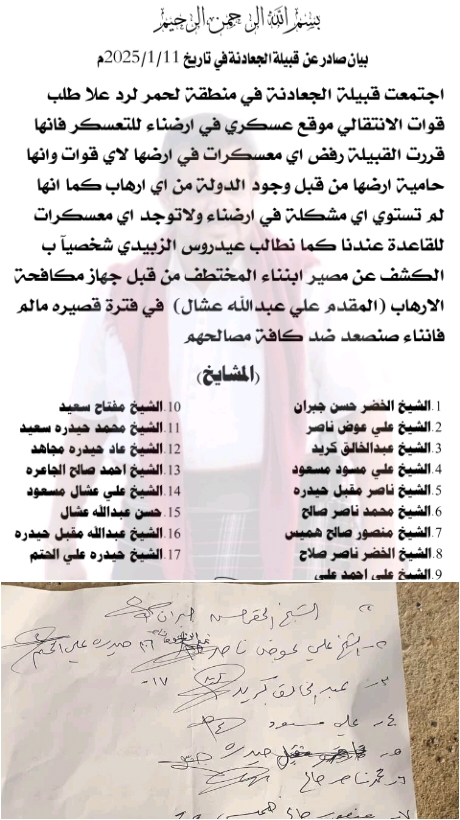 بسم الله الرحمن الرحيم
بيان صادر عن قبيلة الجعادنة في تاريخ 2025/1/11م
اجتمعت قبيلة الجعادنة في منطقة لحمر لرد علا طلب
قوات الانتقالي موقع عسكري في ارضناء للتعسكر فانها
قررت القبيلة رفض اي معسكرات في ارضها لاي قوات وانها
حامية ارضها من قبل وجود الدولة من اي ارهاب كما انها
لم تستوي اي مشكلة في ارضناء ولاتوجد اي معسكرات
للقاعدة عندنا كما نطالب عيدروس الزبيدي شخصيآ ب
الكشف عن مصير ابنناء المختطف من قبل جهاز مكافحة
الارهاب (المقدم علي عبدالله عشال) في فترة قصيره مالم
فانناء صنصعد ضد كافة مصالحهم
(المشايخ)
1.الشيخ الخضر حسن جبران
2.الشيخ علي عوض ناصر
3.الشيخ عبدالخالق كريد
4.الشيخ علي مسود مسعود
5.الشيخ ناصر مقبل حيدره
6.الشيخ محمد ناصر صالح
7.الشيخ منصور صالح هميس
8.الشيخ الخضر ناصر صلاح
9.الشيخ علي احمد علي
10.الشيخ مفتاح سعيد
11.الشيخ محمد حيدره سعيد
12.الشيخ عاد حيدره مجاهد
13.الشيخ احمد صالح الجاعره
14.الشيخ علي عشال مسعود
15.حسن عبدالله عشال
16.الشيخ عبدالله مقبل حيدره
17.الشيخ حيدره علي الحتم
الشيخ الخضر حسن جبران
٢- الشيخ علي عوض ناصر
١٦ حيدره علي الحتم
٣- عبد الخالق كريد
١٧-
٤- علي مسعود
٥- مقبل حيدره
٦- محمد ناصر صالح
منصور صالح هميس